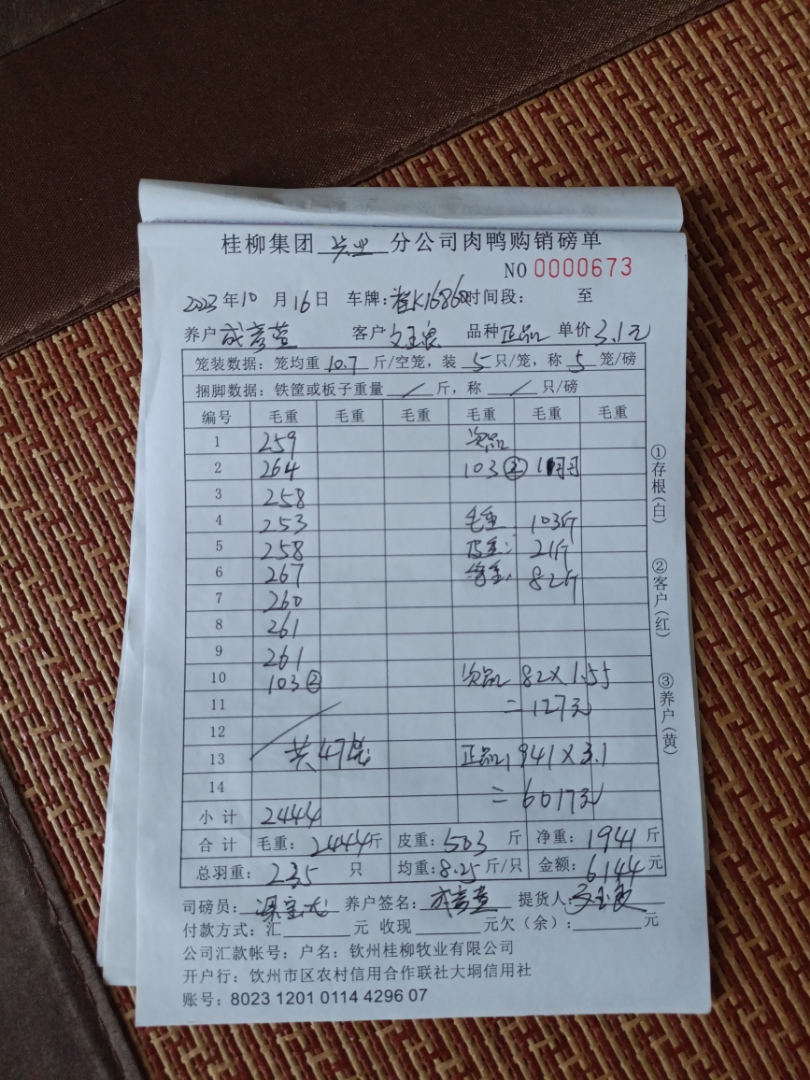 桂柳集团 分公司肉鸭购销磅单
NO 0000673
2023年10月16日 车牌: K16860 时间段: 至
养户 成彦萱 客户 文玉良 品种 正品 单价 3.1元
笼装数据: 笼均重 10.7 斤/空笼, 装 5 只/笼, 称 5 笼/磅
捆脚数据: 铁筐或板子重量 / 斤, 称 / 只/磅
编号 毛重 毛重 毛重 毛重 毛重 毛重
1 259 次品
2 264 103②
3 258
4 253 毛重 103斤
5 258 皮重: 21斤
6 267 净重: 82斤
7 260
8 261
9 261
10 103② 次品 82×1.55
11 =127元
12
13 共47笼 正品1941×3.1
14 =6017元
小计 2444
合计 毛重: 2444斤 皮重: 503斤 净重: 1941斤
总羽重: 235只 均重: 8.25斤/只 金额: 6144元
司磅员: 养户签名: 成彦萱 提货人:
付款方式: 汇 元 收现 元欠(余): 元
公司汇款帐号: 户名: 钦州桂柳牧业有限公司
开户行: 钦州市区农村信用合作联社大垌信用社
账号: 8023 1201 0114 4296 07
①存根(白)
②客户(红)
③养户(黄)